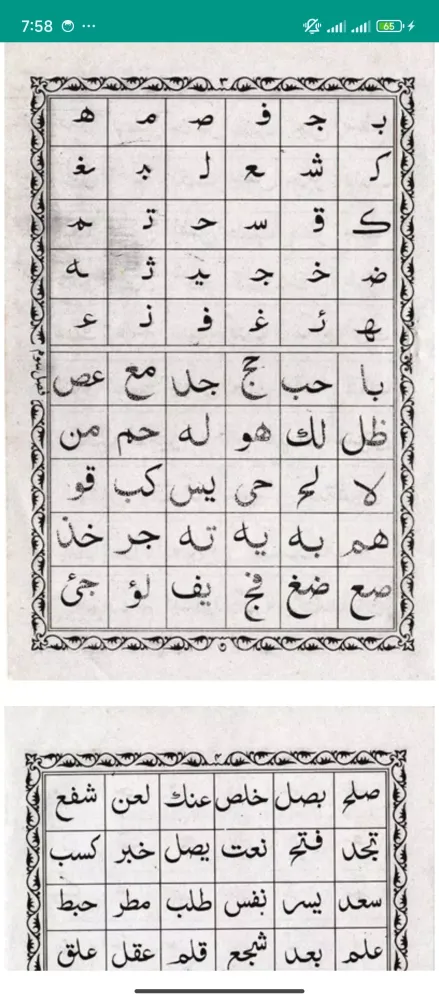 7:58 65
٣
بـ جـ فـ صـ مـ هـ
کـ شـ عـ لـ
ڪـ قـ سـ حـ تـ
ضـ خـ جـ ثـ
فـ غـ
با حب جج جد مع عص
ظل لك هو له حم من
لا لح حى يس كب قو
هم به يه ته جر خذ
صع ضغ فج يف لؤ جئ
صلح بصل خلص عنك لعن شفع
تجد فتح نعت يصل خبر كسب
سعد يسر نفس طلب مطر حبط
علم بعد شجع قلم عقل علق